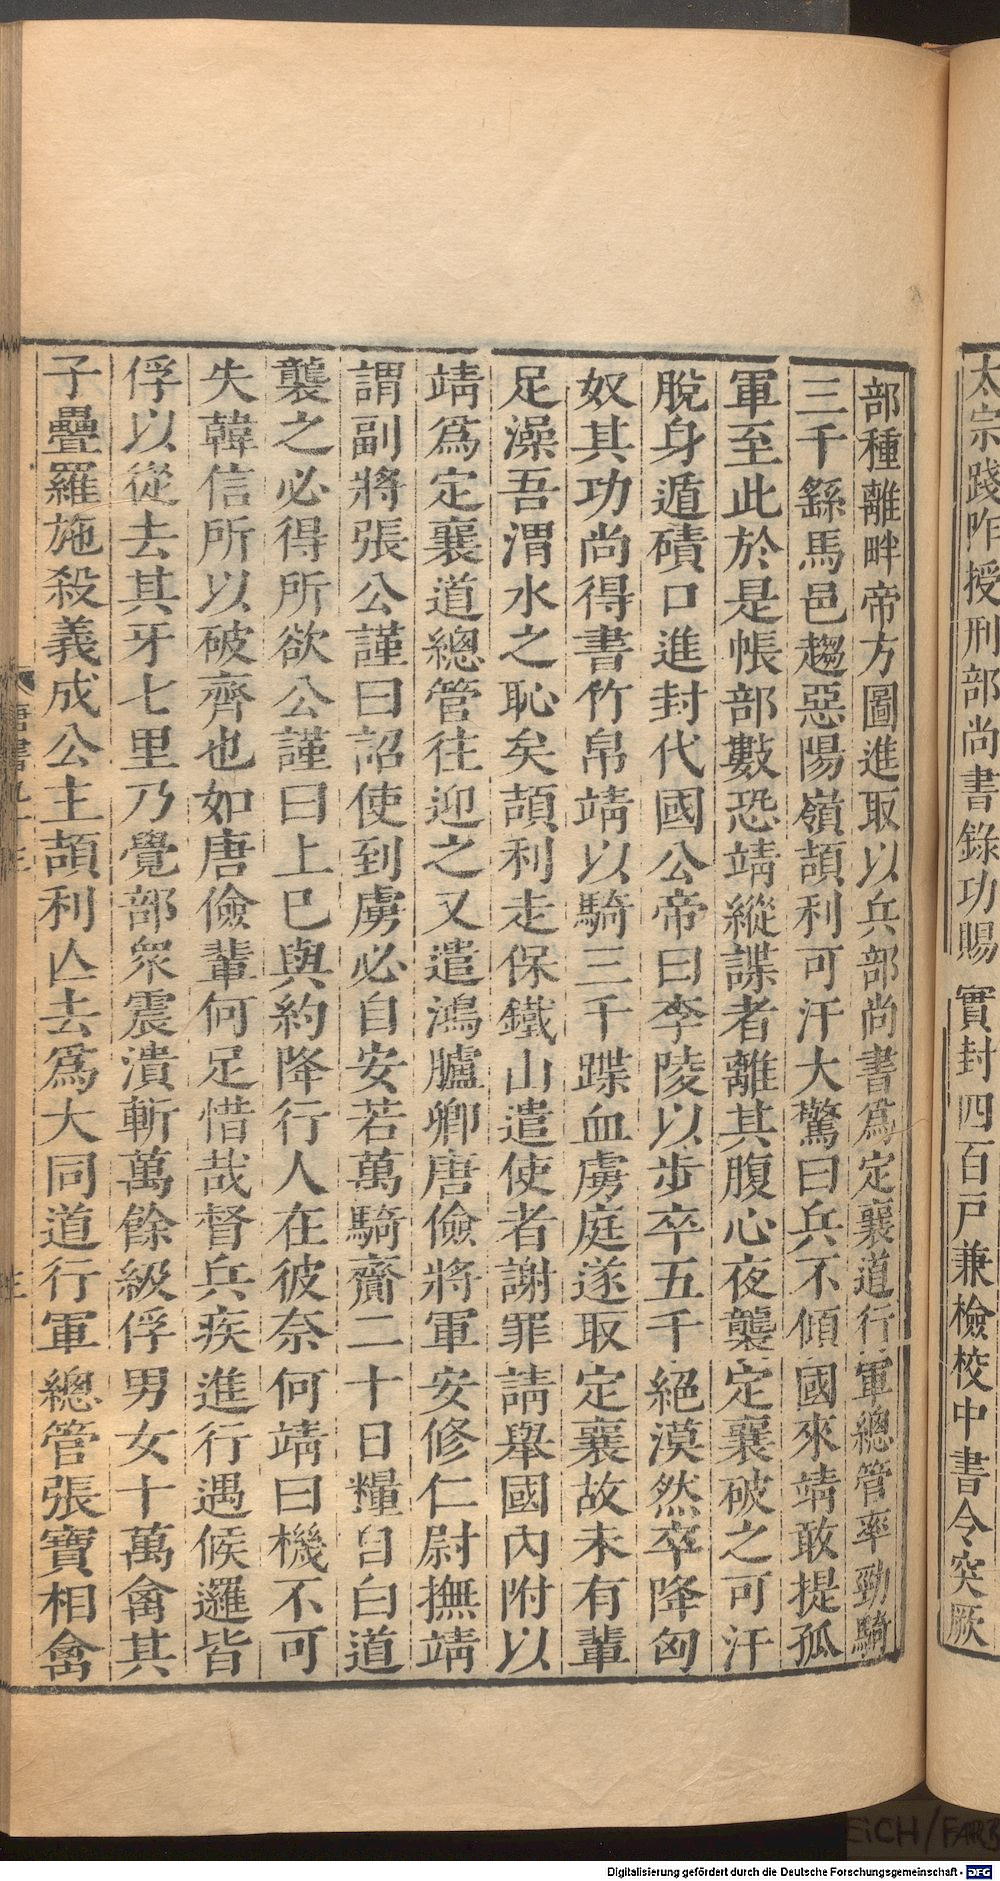 太宗踐阼授刑部尚書錄功賜實封四百戸兼檢校中書令突厥
部種離畔帝方圖進取以兵部尚書爲定襄道行軍總管率勁騎
三千繇馬邑趨惡陽嶺頡利可汗大驚曰兵不傾國來靖敢提孤
軍至此於是帳部數恐靖縱諜者離其腹心夜襲定襄破之可汗
脫身遁磧口進封代國公帝曰李陵以步卒五千絕漠然卒降匈
奴其功尚得書竹帛靖以騎三千蹀血虜庭遂取定襄故未有輩
足澡吾渭水之恥矣頡利走保鐵山遣使者謝罪請舉國內附以
靖爲定襄道總管往迎之又遣鴻臚卿唐儉將軍安修仁尉撫靖
謂副將張公謹曰詔使到虜必自安若萬騎齎二十日糧自白道
襲之必得所欲公謹曰上已與約降行人在彼奈何靖曰機不可
失韓信所以破齊也如唐儉輩何足惜哉督兵疾進行遇候邏皆
俘以從去其牙七里乃覺部衆震潰斬萬餘級俘男女十萬禽其
子疊羅施殺義成公主頡利亾去爲大同道行軍總管張寶相禽
唐書九十三
三
EICH/FARB
Digitalisierung gefördert durch die Deutsche Forschungsgemeinschaft - DFG